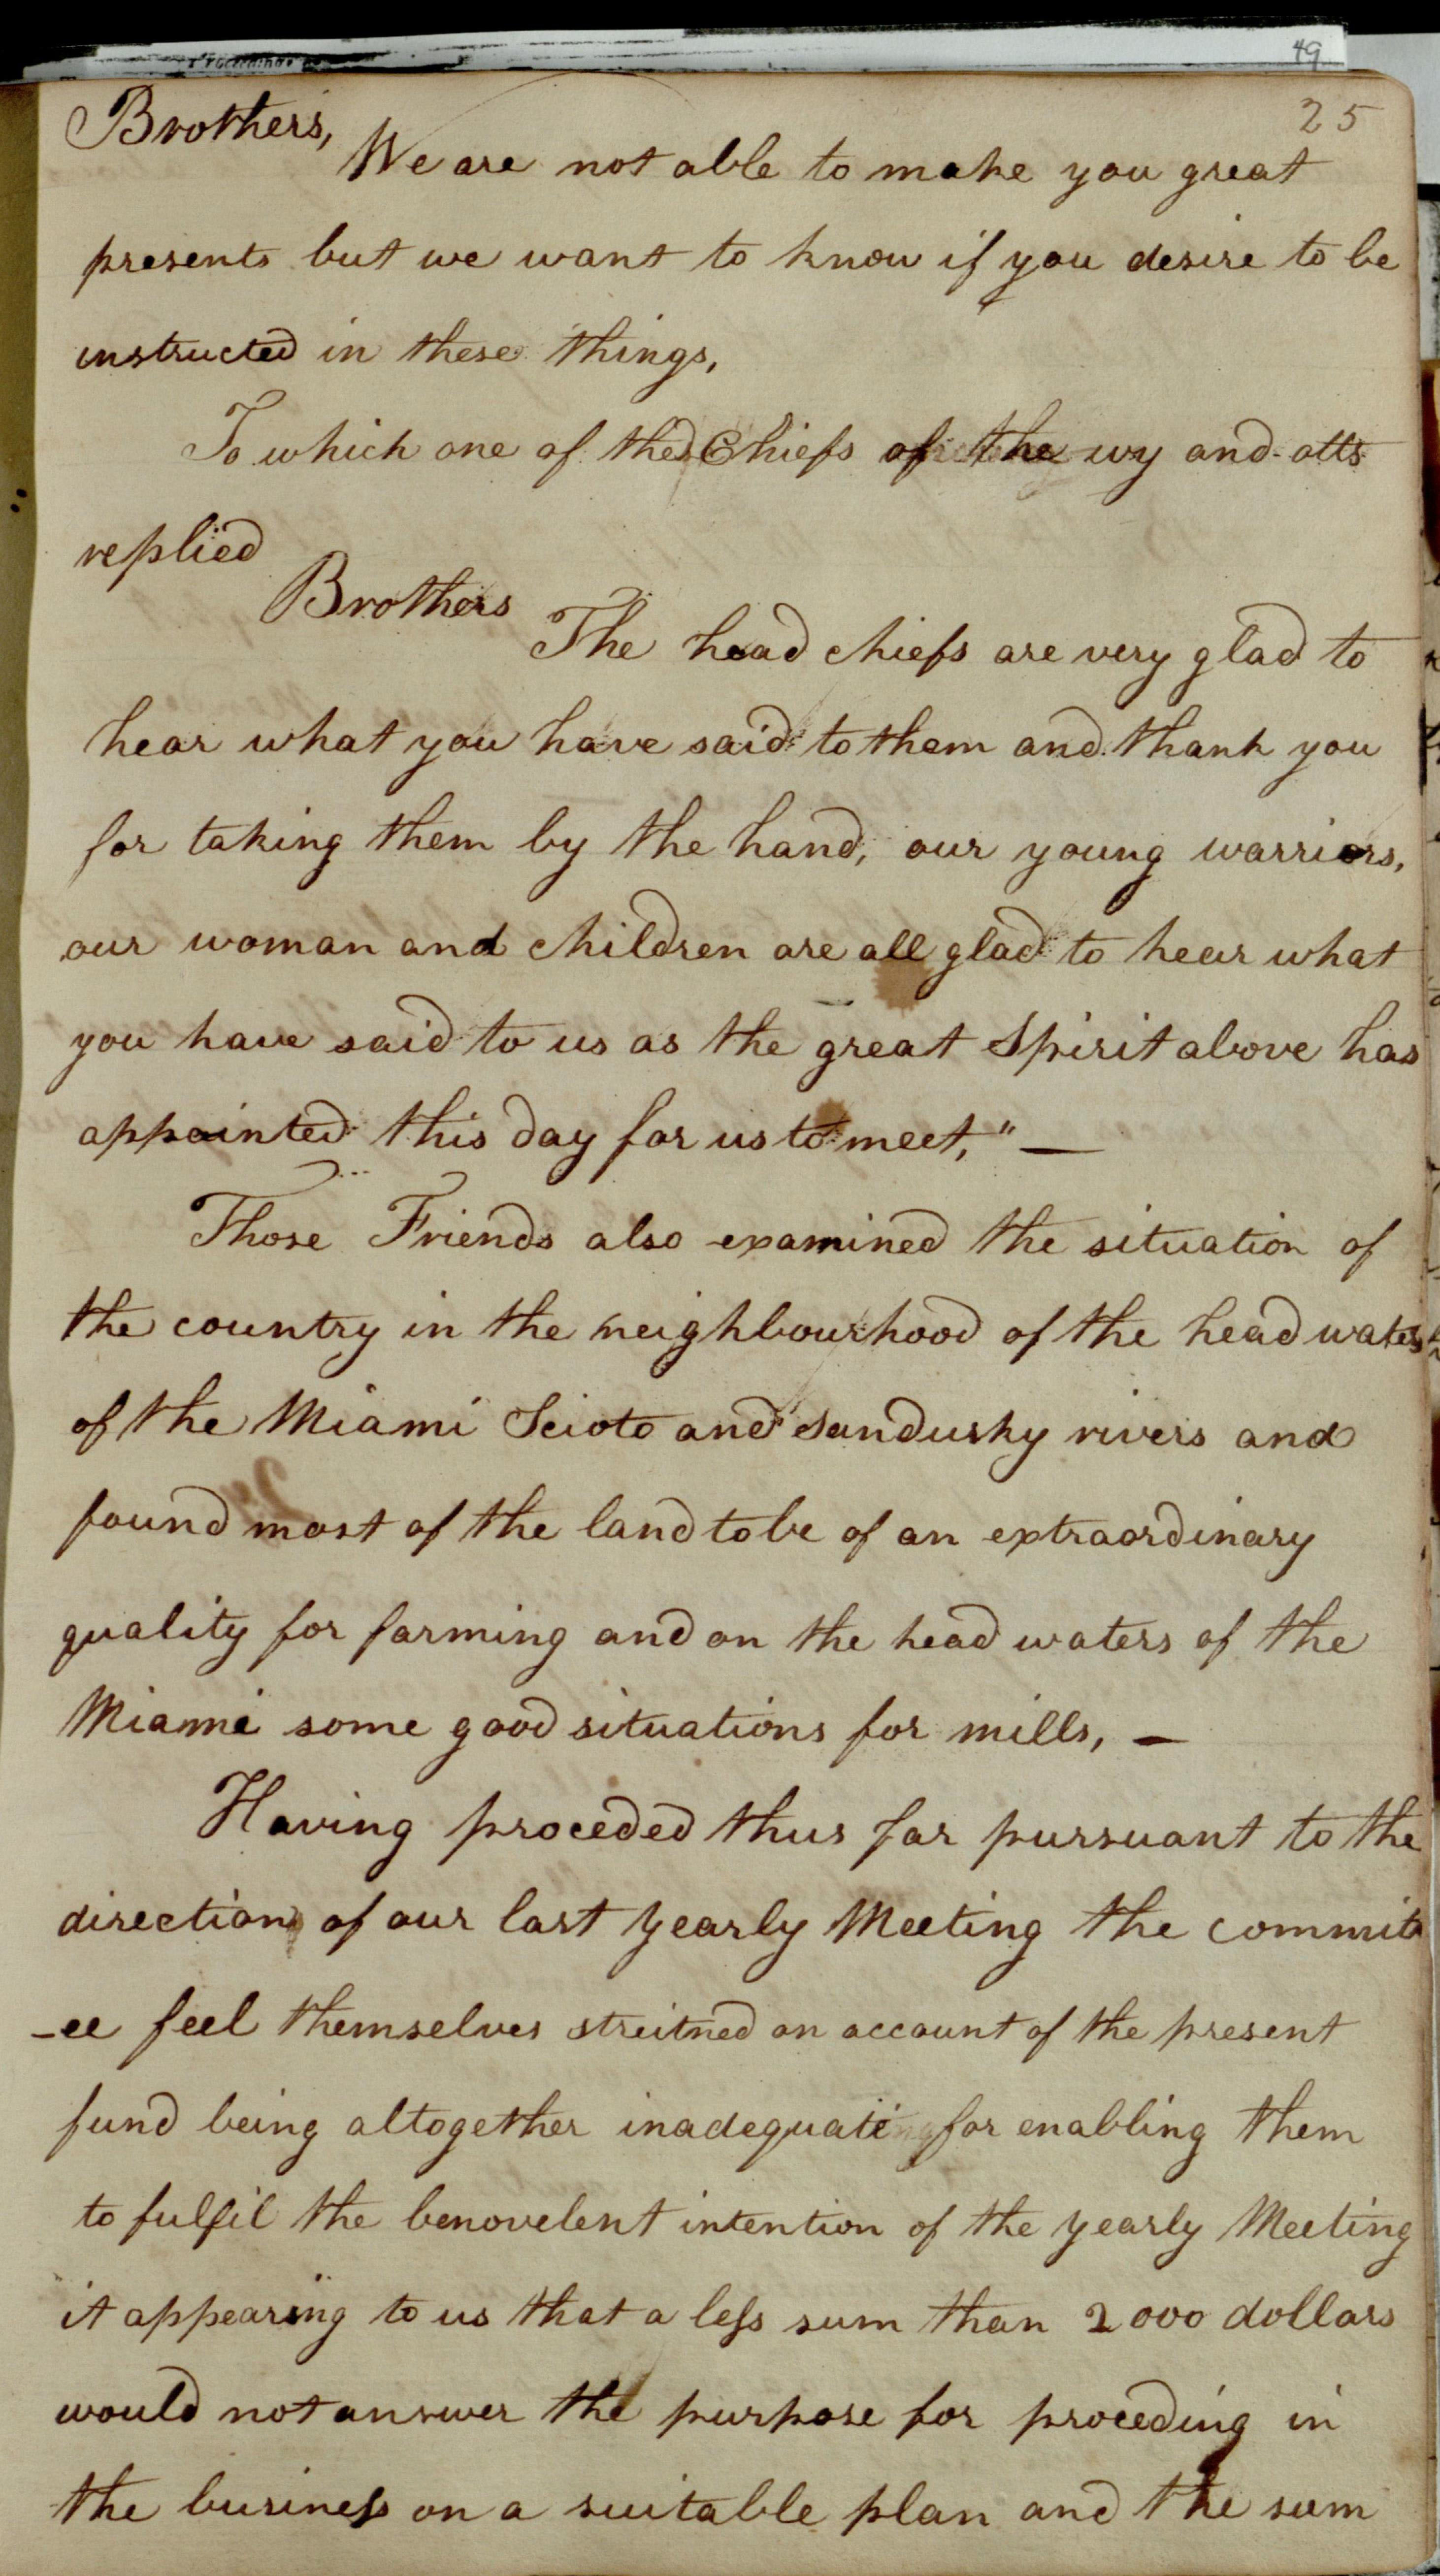 49
25
Brothers,
We are not able to make you great
presents but we want to know if you desire to be
instructed in these things,
To which one of the Chiefs of the wy and-otts
replied
Brothers
The head chiefs are very glad to
hear what you have said to them and thank you
for taking them by the hand, our young warriors,
our woman and children are all glad to hear what
you have said to us as the great Spirit above has
appointed this day for us to meet," —
Those Friends also examined the situation of
the country in the neighbourhood of the head waters
of the Miami Scioto and Sandusky rivers and
found most of the land to be of an extraordinary
quality for farming and on the head waters of the
Miami some good situations for mills, —
Having proceded thus far pursuant to the
direction of our last Yearly Meeting the committ
-ee feel themselves streitned on account of the present
fund being altogether inadequate for enabling them
to fulfil the benovelent intention of the Yearly Meeting
it appearing to us that a less sum than 2000 dollars
would not answer the purpose for proceding in
the business on a suitable plan and the sum